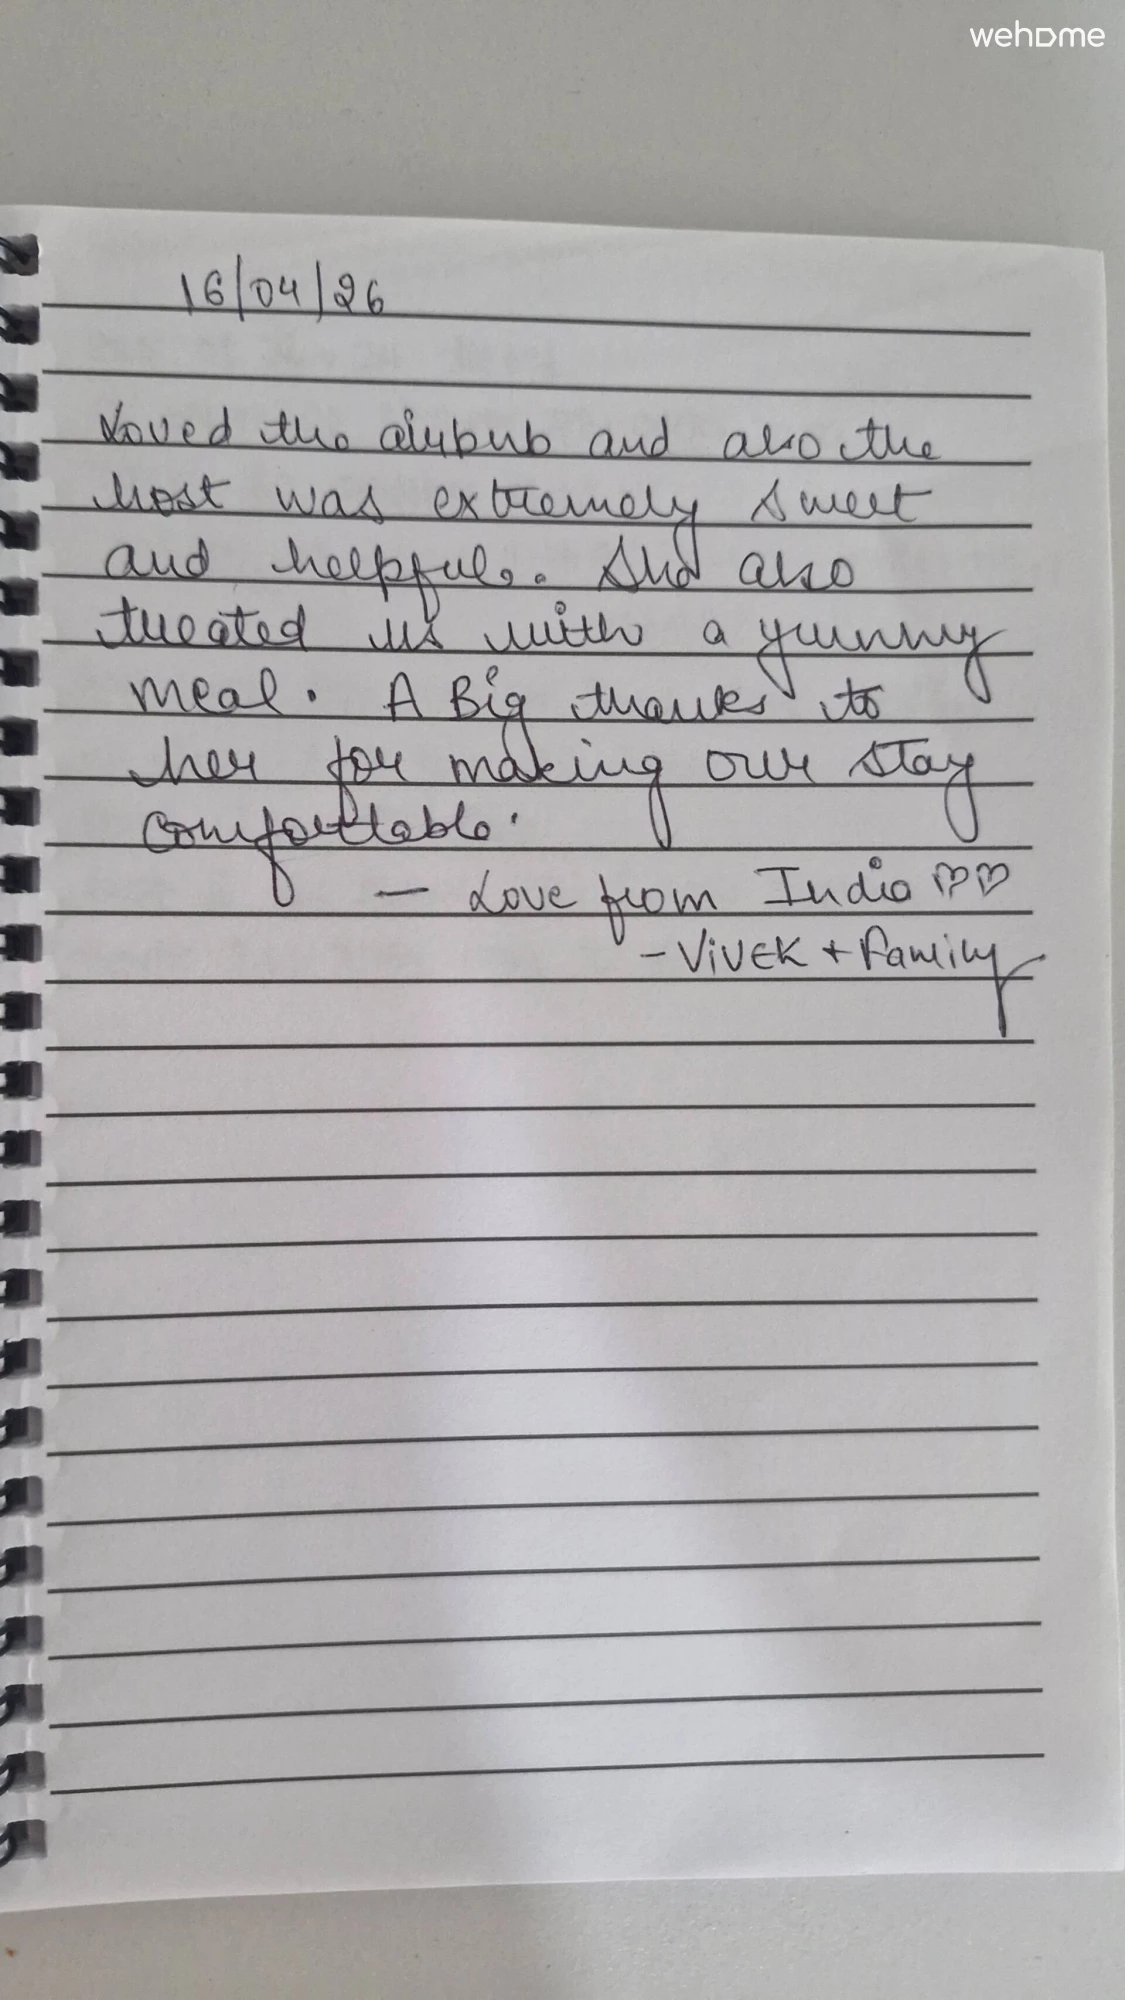 wehome
16/04/26
Loved the airbnb and also the
host was extremely sweet
and helpful. She also
treated us with a yummy
meal. A Big thanks to
her for making our stay
comfortable.
— Love from India ♡♡
- Vivek + Family